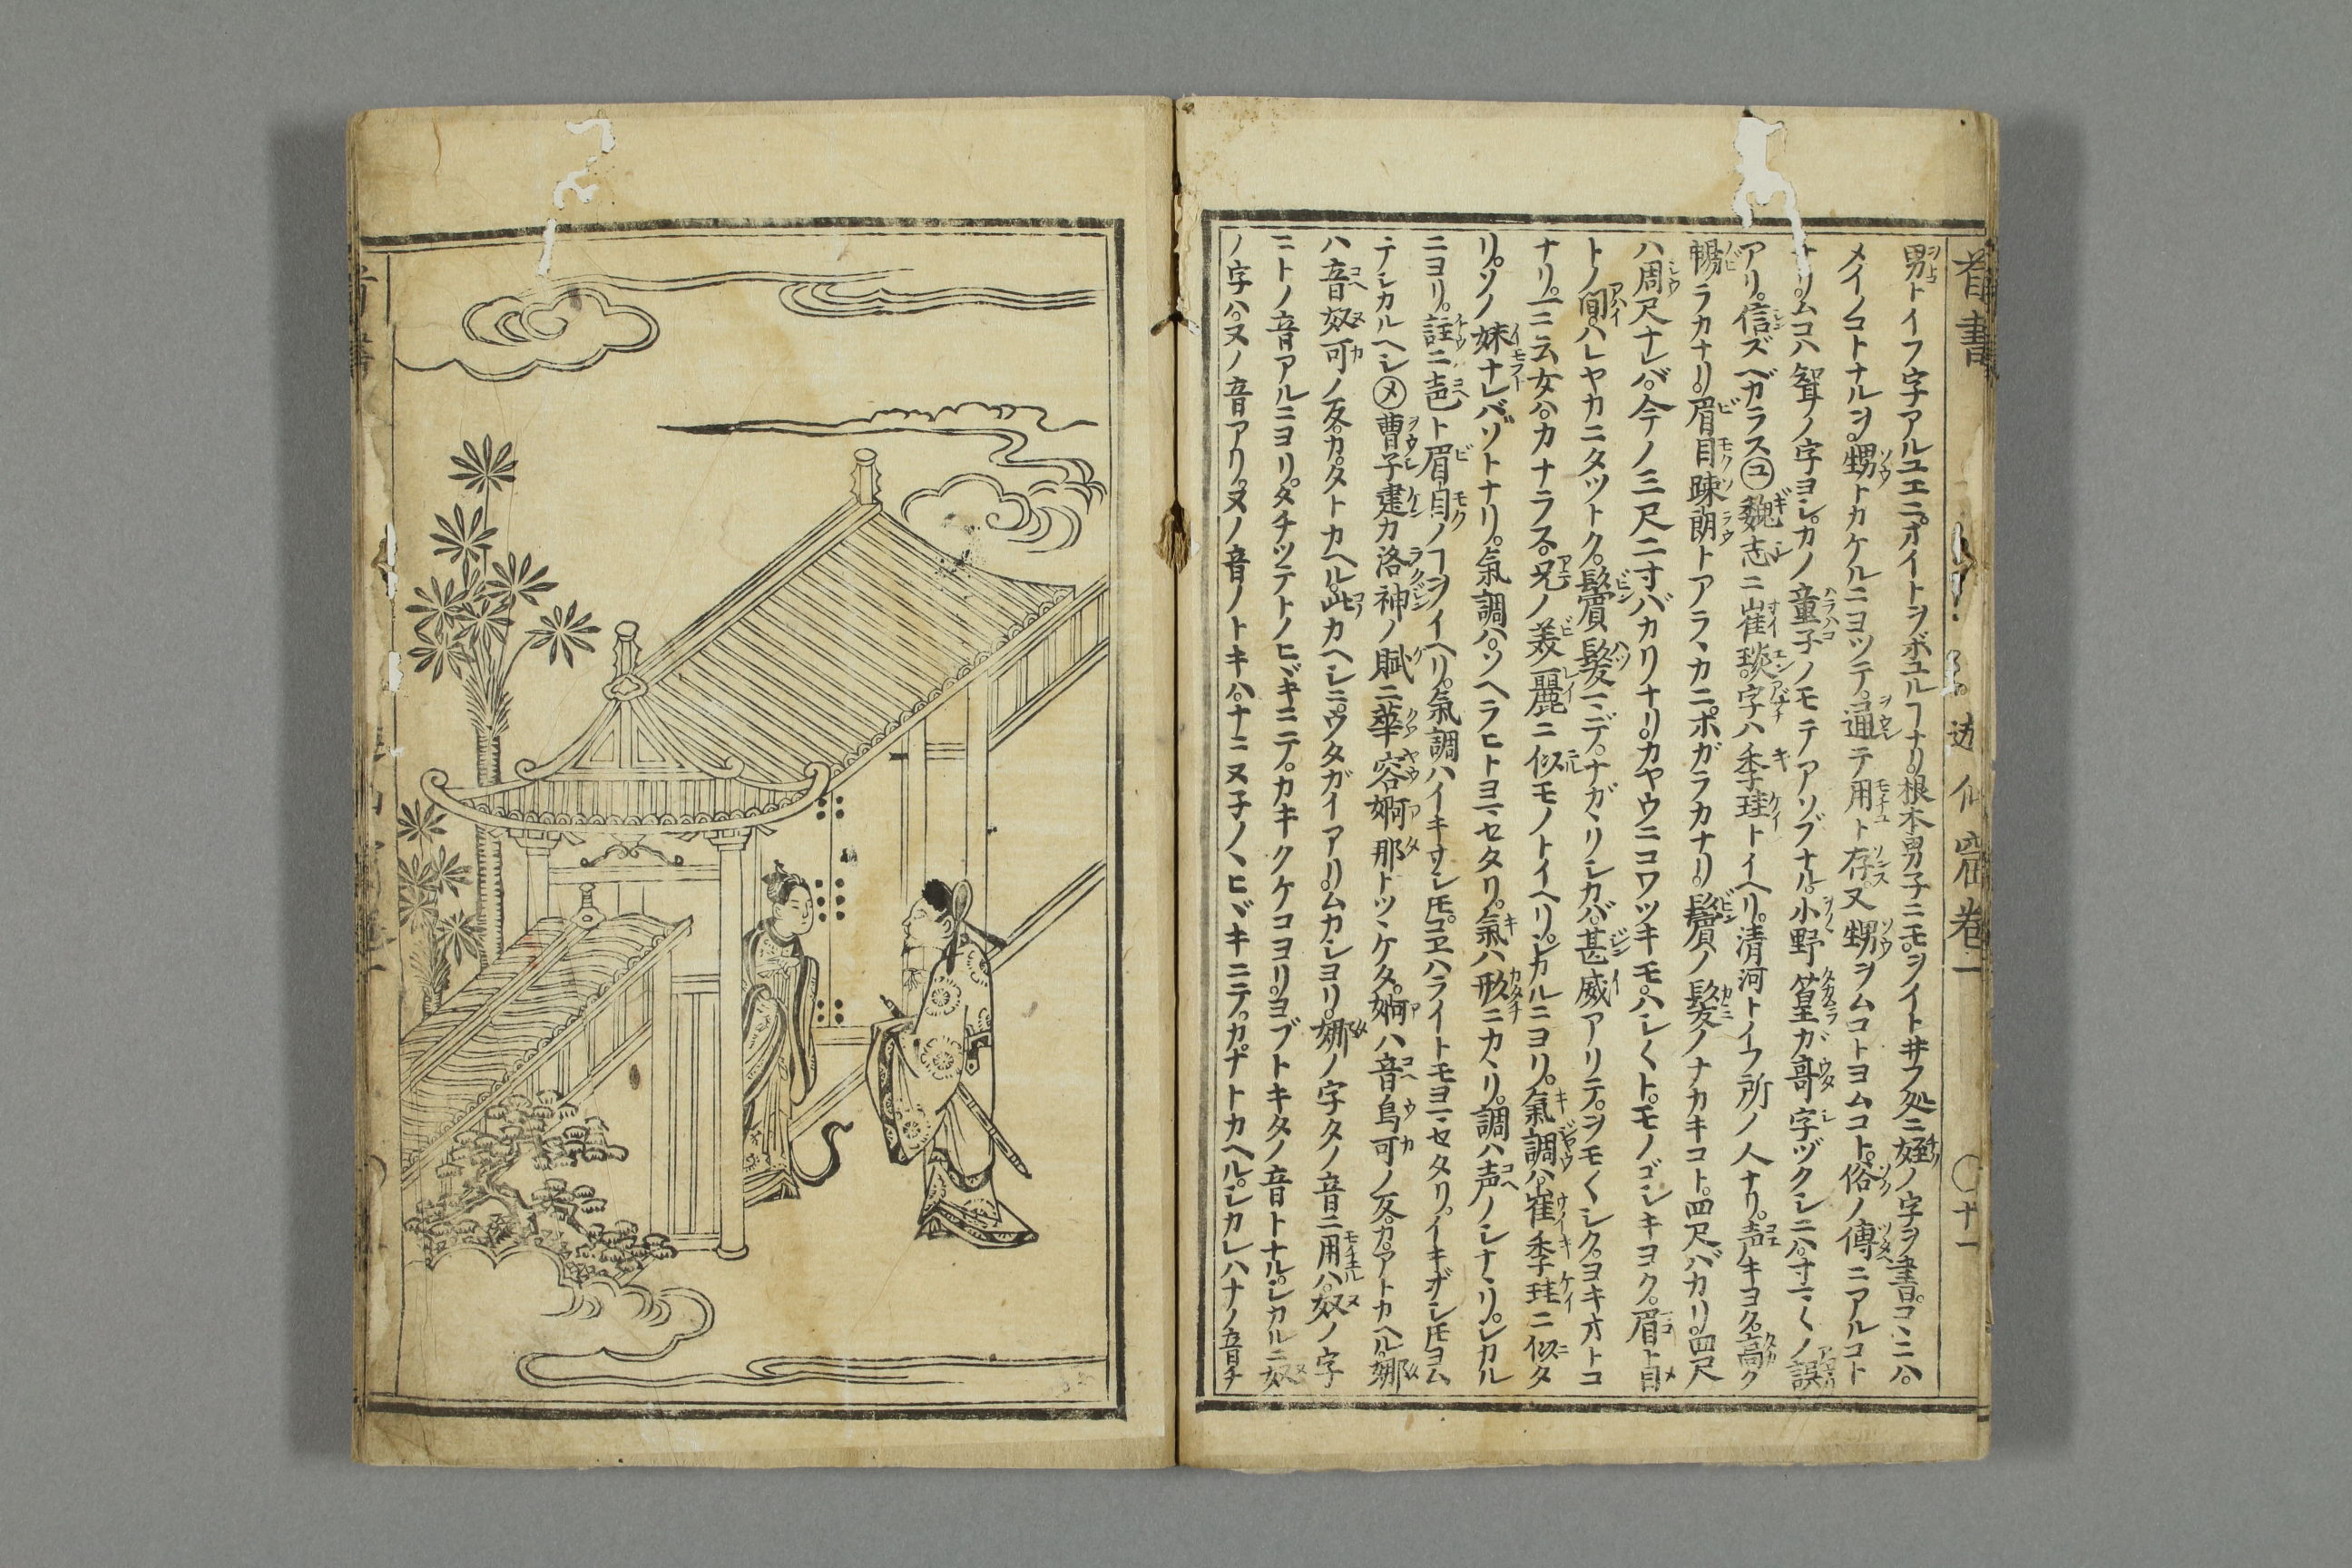 首書
遊仙窟巻一
〇十一
男トイフ字アルユエニ。オイトヲボユルヿナリ。根本男子ニモ。ヲイトサフ処ニ姪ノ字ヲ書。コヽニハ。
メイノコトナルヲ。甥トカケルニヨツテ。通テ用ト存。又甥ヲムコトヨムコト。俗ノ傳ニアルコト
ナリ。ムコハ聟ノ字ヨシ。カノ童子ノモテアソブナル。小野篁ガ哥字ヅクシニハ。サマ〱ノ誤
アリ。信ズベガラス㋴魏志ニ崔琰。字ハ季珪トイヘリ。清河トイフ所ノ人ナリ。声キヨク。高ク
暢ラカナリ。眉目踈朗トアラヽカニ。ホガラカナリ。鬢ノ髪ノナカキコト。四尺バカリ。四尺
ハ周尺ナレバ。今ノ三尺二寸バカリナリ。カヤウニコワツキモ。ハレ〱ト。モノゴシキヨク。眉ト目
トノ間。ハレヤカニタツトク。鬢髪マデ。ナガヽリシカバ。甚威アリテ。ヲモ〱シク。ヨキオトコ
ナリ。一ニ云女ハ。カナラス。兄ノ美麗ニ似モノトイヘリ。シカルニヨリ。氣調ハ。崔季珪ニ似タ
リ。ソノ妹ナレバゾトナリ。氣調ハ。ソヘラヒトヨマセタリ。氣ハ形ニカヽリ。調ハ声ノシナヽリ。シカル
ニヨリ。註ニ声ト眉目ノヿヲイヘリ。氣調ハイキサシ𪜈。コヱハライトモヨマセタリ。イキザシ𪜈ヨム
テシカルヘシ㋱曹子建カ洛神ノ賦ニ華容婀那トツヽケタ。婀ハ音烏可ノ反。カ。アトカヘル。娜
ハ音奴可ノ反。カ。タトカヘル。此カヘシニ。ウタガイアリ。ムカシヨリ。娜ノ字タノ音ニ用ハ。奴ノ字
ニトノ音アルニヨリ。タチツテトノヒヾキニテ。カキクケコヨリ。ヨブトキタノ音トナル。シカルニ奴
ノ字ハ。ヌノ音アリ。ヌノ音ノトキハ。ナニヌ子ノヽヒヾキニテ。カ。ナトカヘル。シカレハナノ音チ